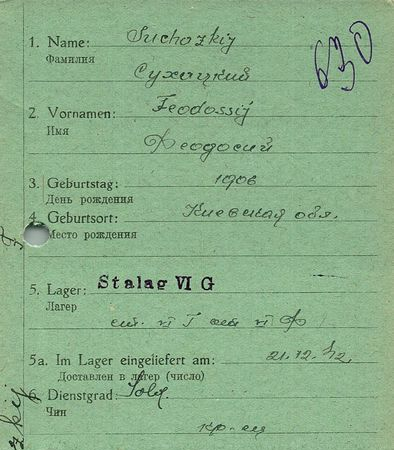 1. Name: Suchozkij
Фамилия
Сухацкий
630
2. Vornamen: Feodossij
Имя
Феодосий
3. Geburtstag: 1906
День рождения
4. Geburtsort: Киевская обл.
Место рождения
5. Lager: Stalag VI G
Лагерь
5a. Im Lager eingeliefert am: 21.12.42
Доставлен в лагер (число)
6. Dienstgrad: Sold.
Чин
кр-ец